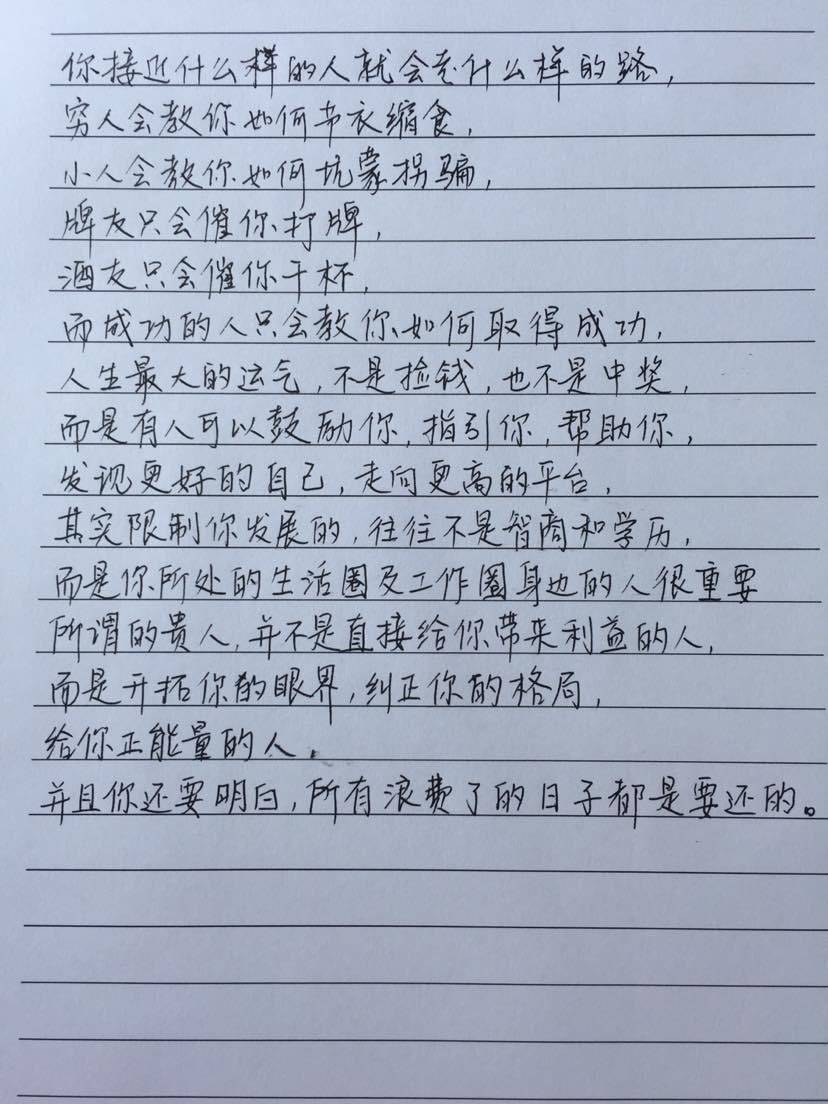 你接近什么样的人就会走什么样的路，
穷人会教你如何节衣缩食，
小人会教你如何坑蒙拐骗，
牌友只会催你打牌，
酒友只会催你干杯，
而成功的人只会教你如何取得成功，
人生最大的运气，不是捡钱，也不是中奖，
而是有人可以鼓励你，指引你，帮助你，
发现更好的自己，走向更高的平台，
其实限制你发展的，往往不是智商和学历，
而是你所处的生活圈及工作圈身边的人很重要
所谓的贵人，并不是直接给你带来利益的人，
而是开拓你的眼界，纠正你的格局，
给你正能量的人，
并且你还要明白，所有浪费了的日子都是要还的。